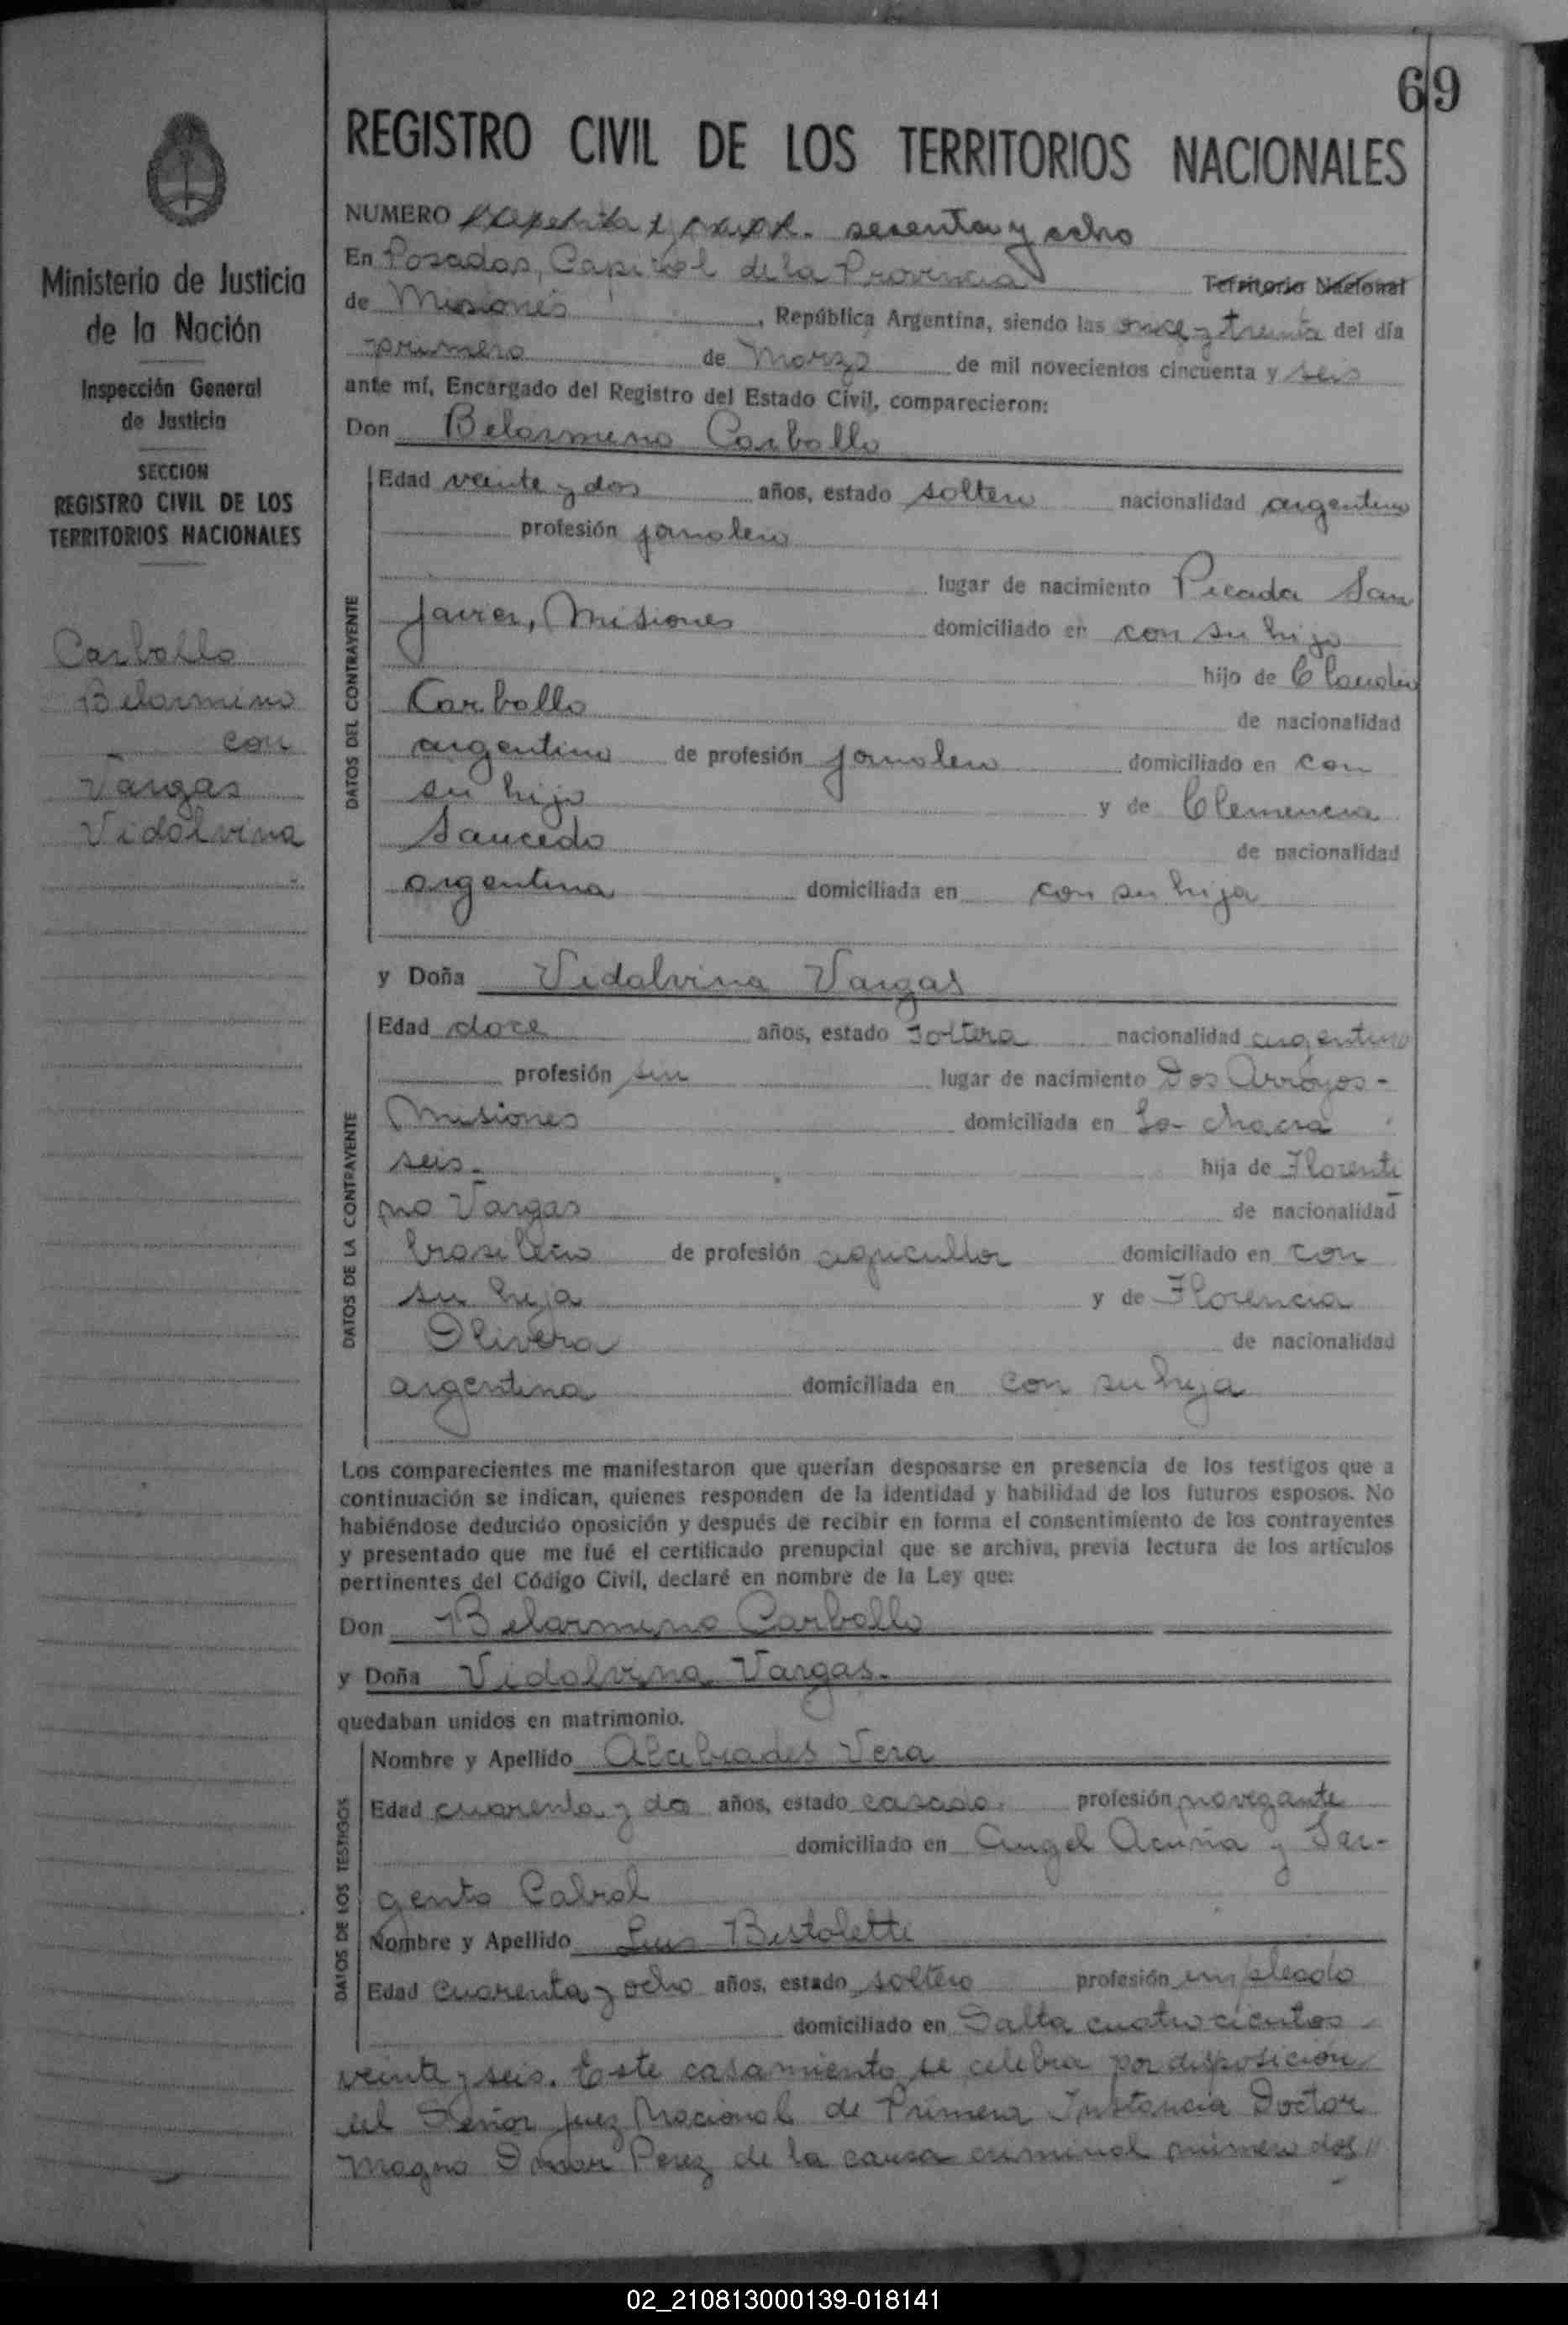 69
REGISTRO CIVIL DE LOS TERRITORIOS NACIONALES
Ministerio de Justicia
de la Nación
Inspección General
de Justicia
SECCION
REGISTRO CIVIL DE LOS
TERRITORIOS NACIONALES
Carballo
Belarmino
con
Vargas
Vidalvina
NUMERO sesenta y ocho
En Posadas, Capital de la Provincia Territorio Nacional
de Misiones, República Argentina, siendo las once y treinta del día
primero de Marzo de mil novecientos cincuenta y seis
ante mí, Encargado del Registro del Estado Civil, comparecieron:
Don Belarmino Carballo
DATOS DEL CONTRAYENTE
Edad veinte y dos años, estado soltero nacionalidad argentino
profesión jornalero
lugar de nacimiento Picada San
Javier, Misiones domiciliado en con su hijo
hijo de Claudio
Carballo de nacionalidad
argentino de profesión jornalero domiciliado en con
su hijo y de Clemencia
Saucedo de nacionalidad
argentina domiciliada en con su hija
y Doña Vidalvina Vargas
DATOS DE LA CONTRAYENTE
Edad doce años, estado soltera nacionalidad argentina
profesión sin lugar de nacimiento Dos Arroyos -
Misiones domiciliada en La chacra
seis. hija de Florenti
no Vargas de nacionalidad
brasilero de profesión agricultor domiciliado en con
su hija y de Florencia
Olivera de nacionalidad
argentina domiciliada en con su hija
Los comparecientes me manifestaron que querían desposarse en presencia de los testigos que a
continuación se indican, quienes responden de la identidad y habilidad de los futuros esposos. No
habiéndose deducido oposición y después de recibir en forma el consentimiento de los contrayentes
y presentado que me fué el certificado prenupcial que se archiva, previa lectura de los artículos
pertinentes del Código Civil, declaré en nombre de la Ley que:
Don Belarmino Carballo
y Doña Vidalvina Vargas.
quedaban unidos en matrimonio.
DATOS DE LOS TESTIGOS
Nombre y Apellido Alcibiades Vera
Edad cuarenta y dos años, estado casado. profesión navegante
domiciliado en Angel Acuña y Sar-
gento Cabral
Nombre y Apellido Luis Bistoletti
Edad cuarenta y ocho años, estado soltero profesión empleado
domiciliado en Salta cuatrocientos
veinte y seis. Este casamiento se celebra por disposición
del Señor Juez Nacional de Primera Instancia Doctor
Magno Omar Perez de la causa criminal número dos //
02_210813000139-018141